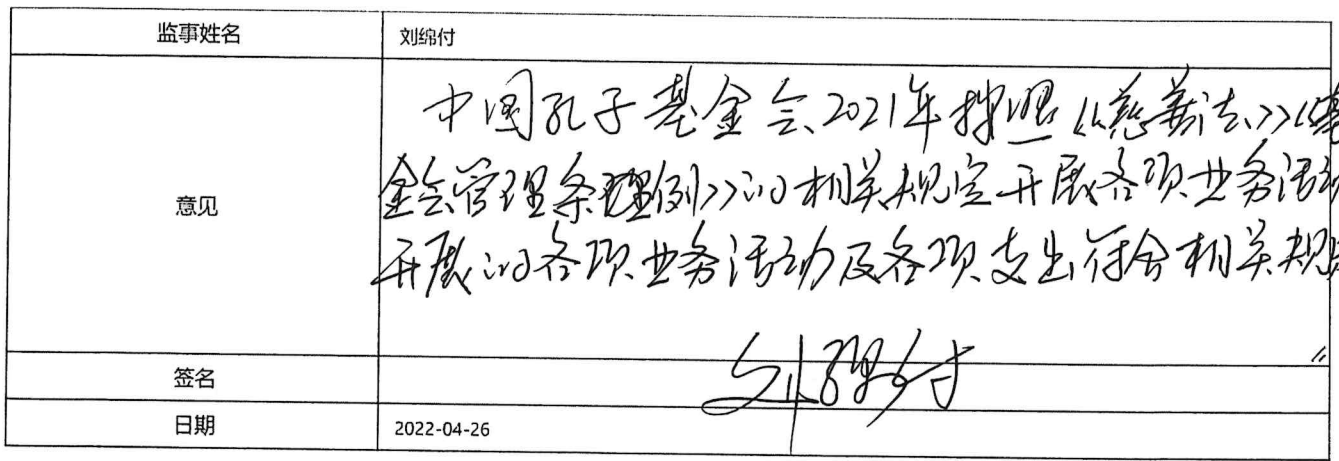 监事姓名 刘绵付
意见
中国孔子基金会2021年按照《慈善法》《基
金会管理条理例》的相关规定开展各项业务活动
开展的各项业务活动及各项支出符合相关规定
签名 刘绵付
日期 2022-04-26